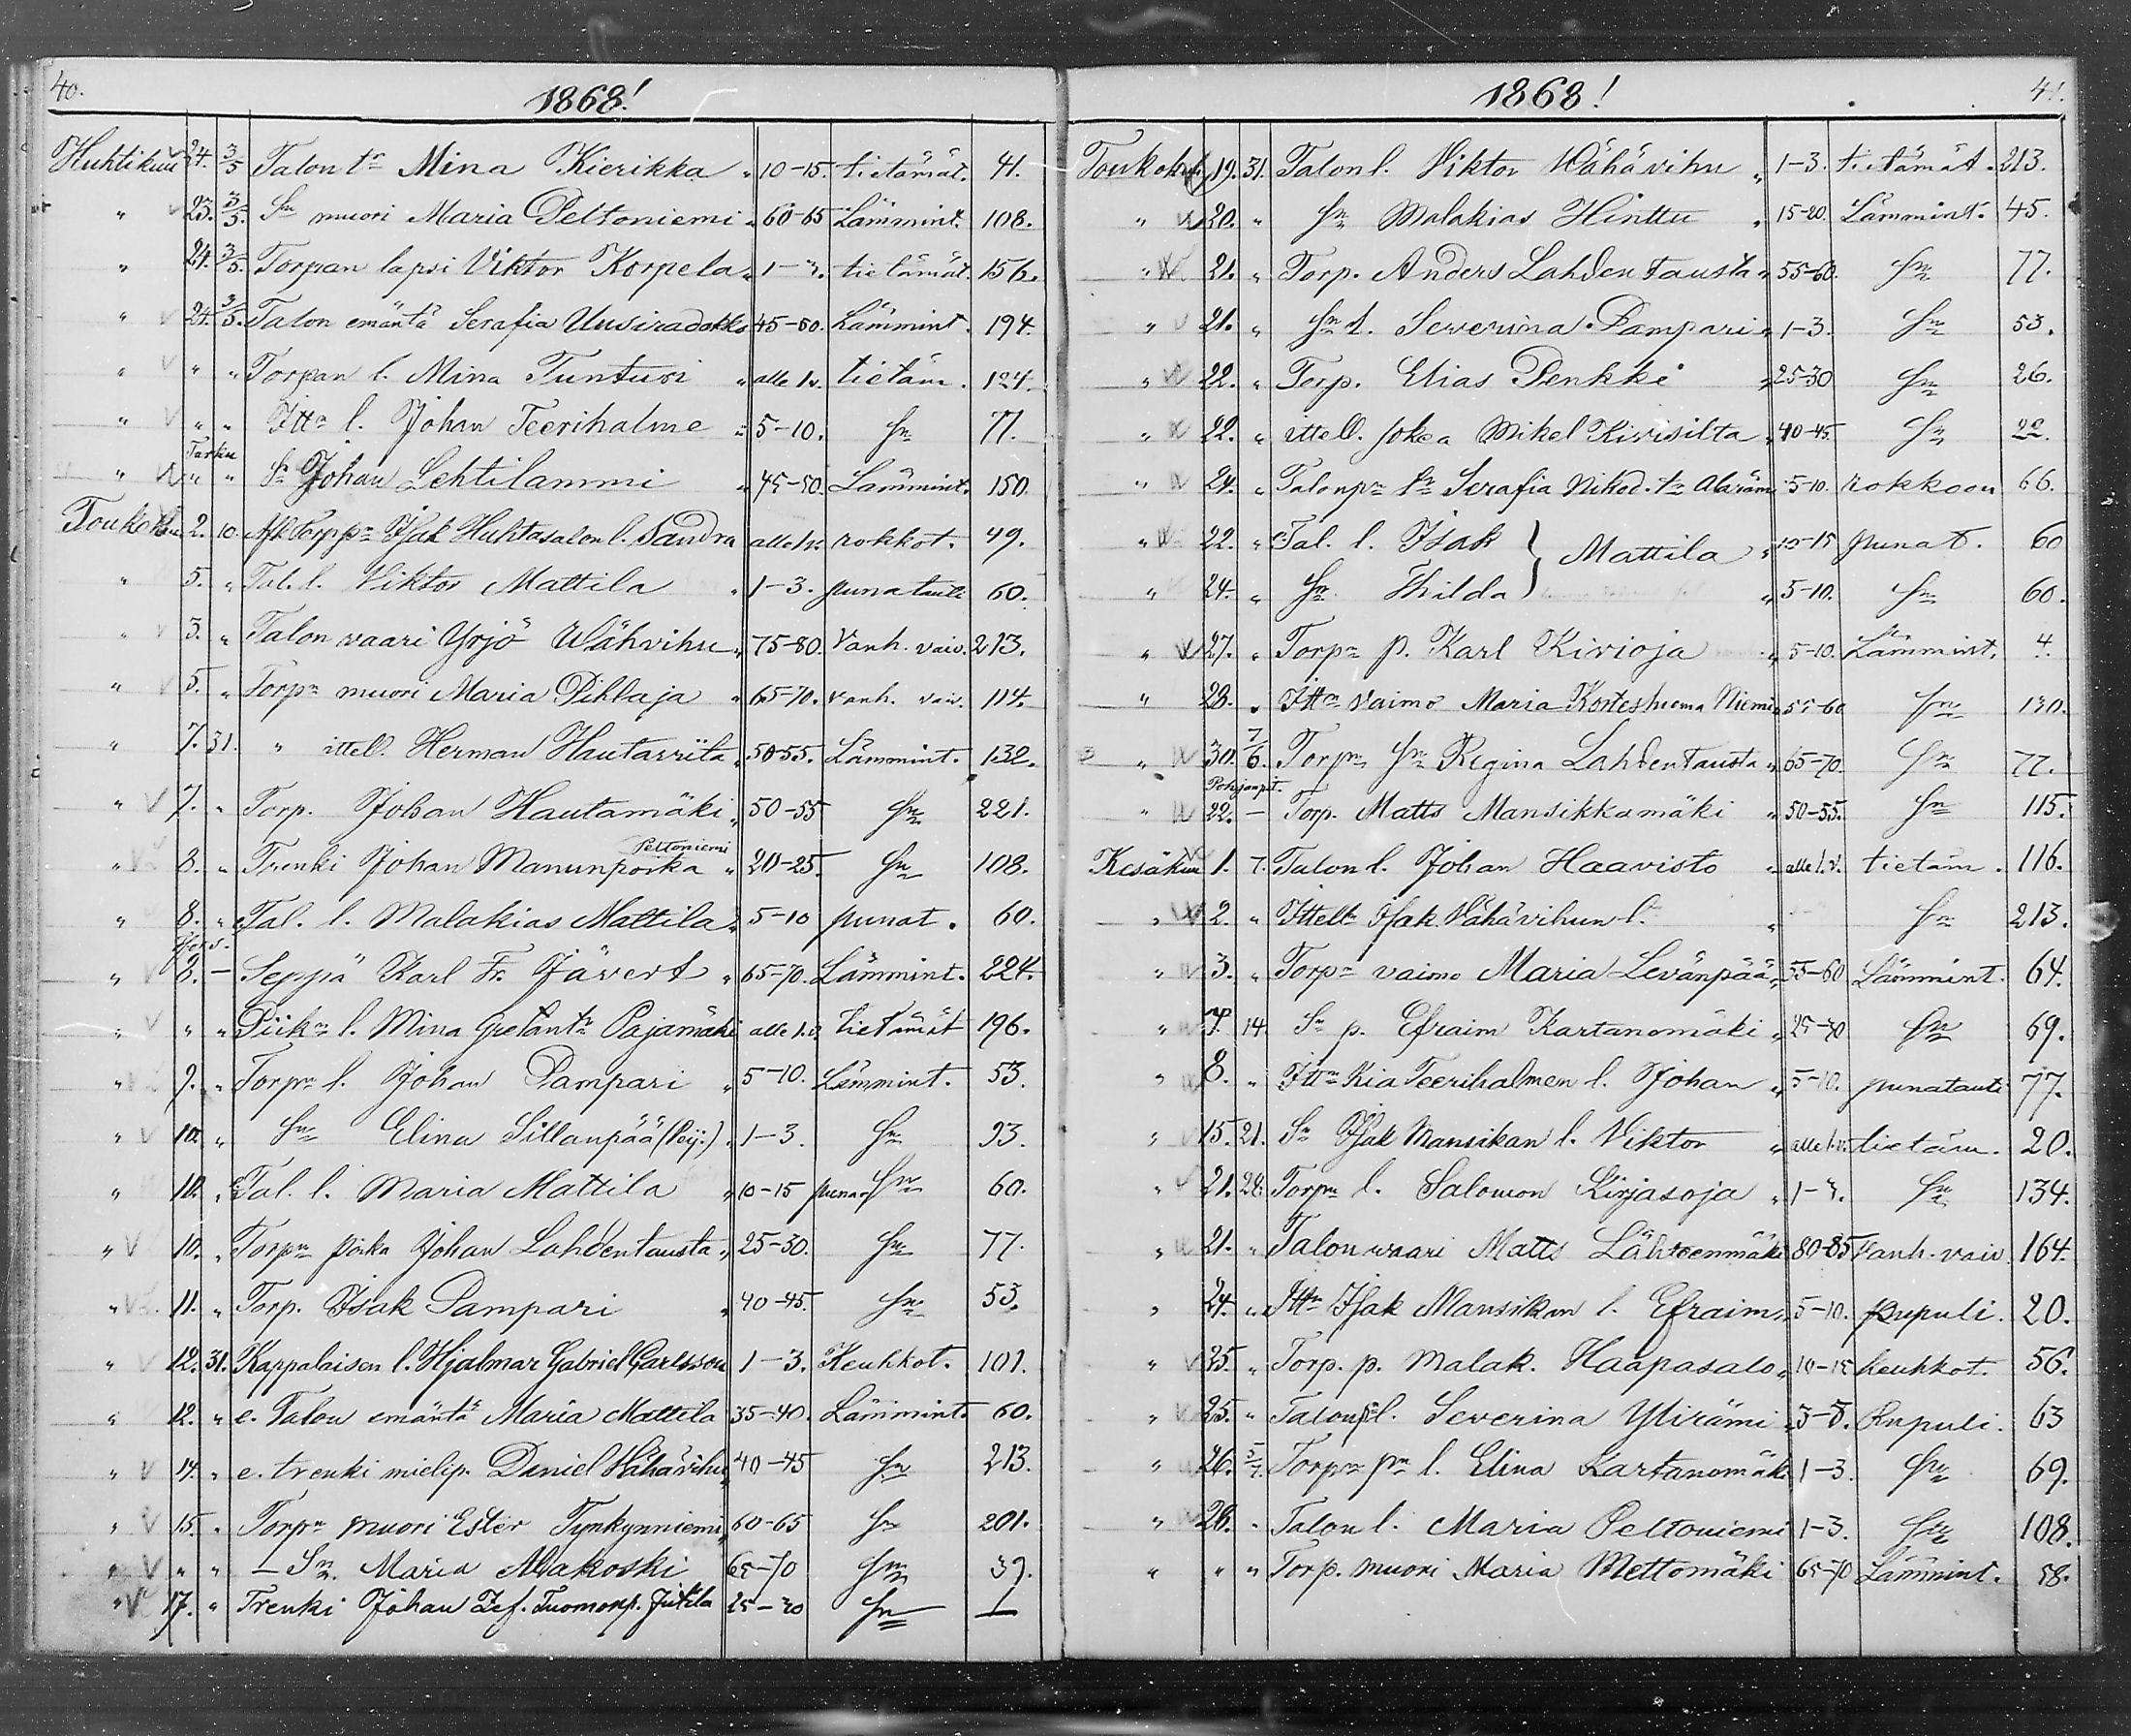 40.
1868!
Huhtikuu 24. 3/5 Talon tr Mina Kierikka " 10-15. tietämät. 41.
" 23. 3/5. Sn muori Maria Peltoniemi " 60-65 Lämmint. 108.
" 24. 3/5. Torpan lapsi Viktor Korpela " 1-3. tietämät. 156.
" 24. 3/5. Talon emäntä Serafia 45-50. Lämmint. 194.
" " " Torpan l. Mina Tunturi " alle 1 v. tietäm. 124.
" " " Ittn l. Johan Teerihalme " 5-10. Sn 77.
Turku
" " " Sn Johan Lehtilammi " 45-50. Lämmint. 150.
Toukokuu 2. 10. Isak Huhtasalon l. Sandra alle 1 v. rokkot. 49.
" 5. " Tal. l. Viktor Mattila " 1-3. punatauti 60.
" 3. " Talon vaari Yrjö Wähvihu " 75-80. Vanh. vaiv. 213.
" 5. " Torpn muori Maria Pihlaja " 65-70. vanh. vaiv. 114.
" 7. 31. " ittell. Herman Hautaviita " 50-55. Lämmint. 132.
" 7. " Torp. Johan Hautamäki " 50-55 Sn 221.
Peltoniemi
" 8. " Trenki Johan Manunpoika " 20-25. Sn 108.
" 8. " Tal. l. Malakias Mattila " 5-10 punat. 60.
" 8. — Seppä Karl Fr. Jävert " 65-70. Lämmint. 224.
" " " Piikn l. Mina Gretantr Pajamäki alle 1.v. tietämät 196.
" 9. " Torpn l. Johan Pampari " 5-10. Lämmint. 53.
" 10. " Sn Elina Sillanpää " 1-3. Sn 93.
" 10. " Tal. l. Maria Mattila " 10-15 punat Sn 60.
" 10. " Torpn poika Johan Lahdentausta " 25-30. Sn 77.
" 11. " Torp. Isak Pampari " 40-45. Sn 53.
" 12. 31. Kappalaisen l. Hjalmar Gabriel Carlsson 1-3. Keuhkot. 101.
" 12. " e. Talon emäntä Maria Mattila 35-40. Lämmint. 60.
" 14. " e. trenki mielip. Daniel Wähävihu " 40-45 Sn 213.
" 15. " Torpn muori Ester Tynkynniemi " 60-65 Sn 201.
" " " — Sn. Maria Alakoski 65-70 Sn 39.
" 17. " Trenki Johan Zef. Tuomonp. Jutila 25-30 Sn —
1868!
41.
Toukokuu 19. 31. Talon l. Viktor Wähävihu " 1-3. tietämät. 213.
" 20. " Sn Malakias Hinttu " 15-20. Lämmint. 45.
" 21. " Torp. Anders Lahdentausta " 55-60. Sn 77.
" 21. " Sn l. Severina Pampari " 1-3. Sn 53.
" 22. " Torp. Elias Penkki " 25-30 Sn 26.
" 22. " ittell. sokea Mikel Kivisilta " 40-45. Sn 22.
" 24. " Talonpn tr Serafia Nikod. tr Alaräm 5-10. rokkoon 66.
" 22. " Tal. l. Isak } Mattila " 10-15 punat. 60
" 24. " Sn Thilda } " 5-10. Sn 60.
" 27. " Torpn p. Karl Kivioja " 5-10. Lämmint. 4.
" 28. " Ittn vaimo Maria Niemi 55-60 Sn 130.
" 30. 7/6. Torpn Sn Regina Lahdentausta " 65-70. Sn 77.
Pohjanpit.
" 22. — Torp. Matts Mansikkamäki " 50-55. Sn 115.
Kesäkuu 1. 7. Talon l. Johan Haavisto " alle 1.v. tietäm. 116.
" 2. " Ittelln Isak Wähävihun l. " Sn 213.
" 3. " Torpn vaimo Maria Levänpää " 55-60 Lämmint. 64.
" 7. 14. Sn p. Efraim Kartanomäki " 25-30 Sn 69.
" 8. " Ittn Kia Teerihalmen l. Johan " 5-10. punatauti 77.
" 15. 21. Sn Isak Mansikan l. Viktor " alle 1.v. tietäm. 20.
" 21. 28. Torpn l. Salomon Kirjasoja " 1-3. Sn 134.
" 21. " Talon vaari Matts Lähteenmäki 80-85 Vanh. vaiv. 164.
" 24. " Ittn Isak Mansikan l. Efraim " 5-10. Rupuli. 20.
" 25. " Torp. p. Malak. Haapasalo " 10-15 keuhkot. 56.
" 25. " Talonpn l. Severina Ylirämi " 3-5. Rupuli. 63
" 26. 5/7. Torpn pn l. Elina Kartanomäki 1-3. Sn 69.
" 26. " Talon l. Maria Peltoniemi 1-3. Sn 108.
" " " Torp. muori Maria Mettomäki 65-70 Lämmint. 58.